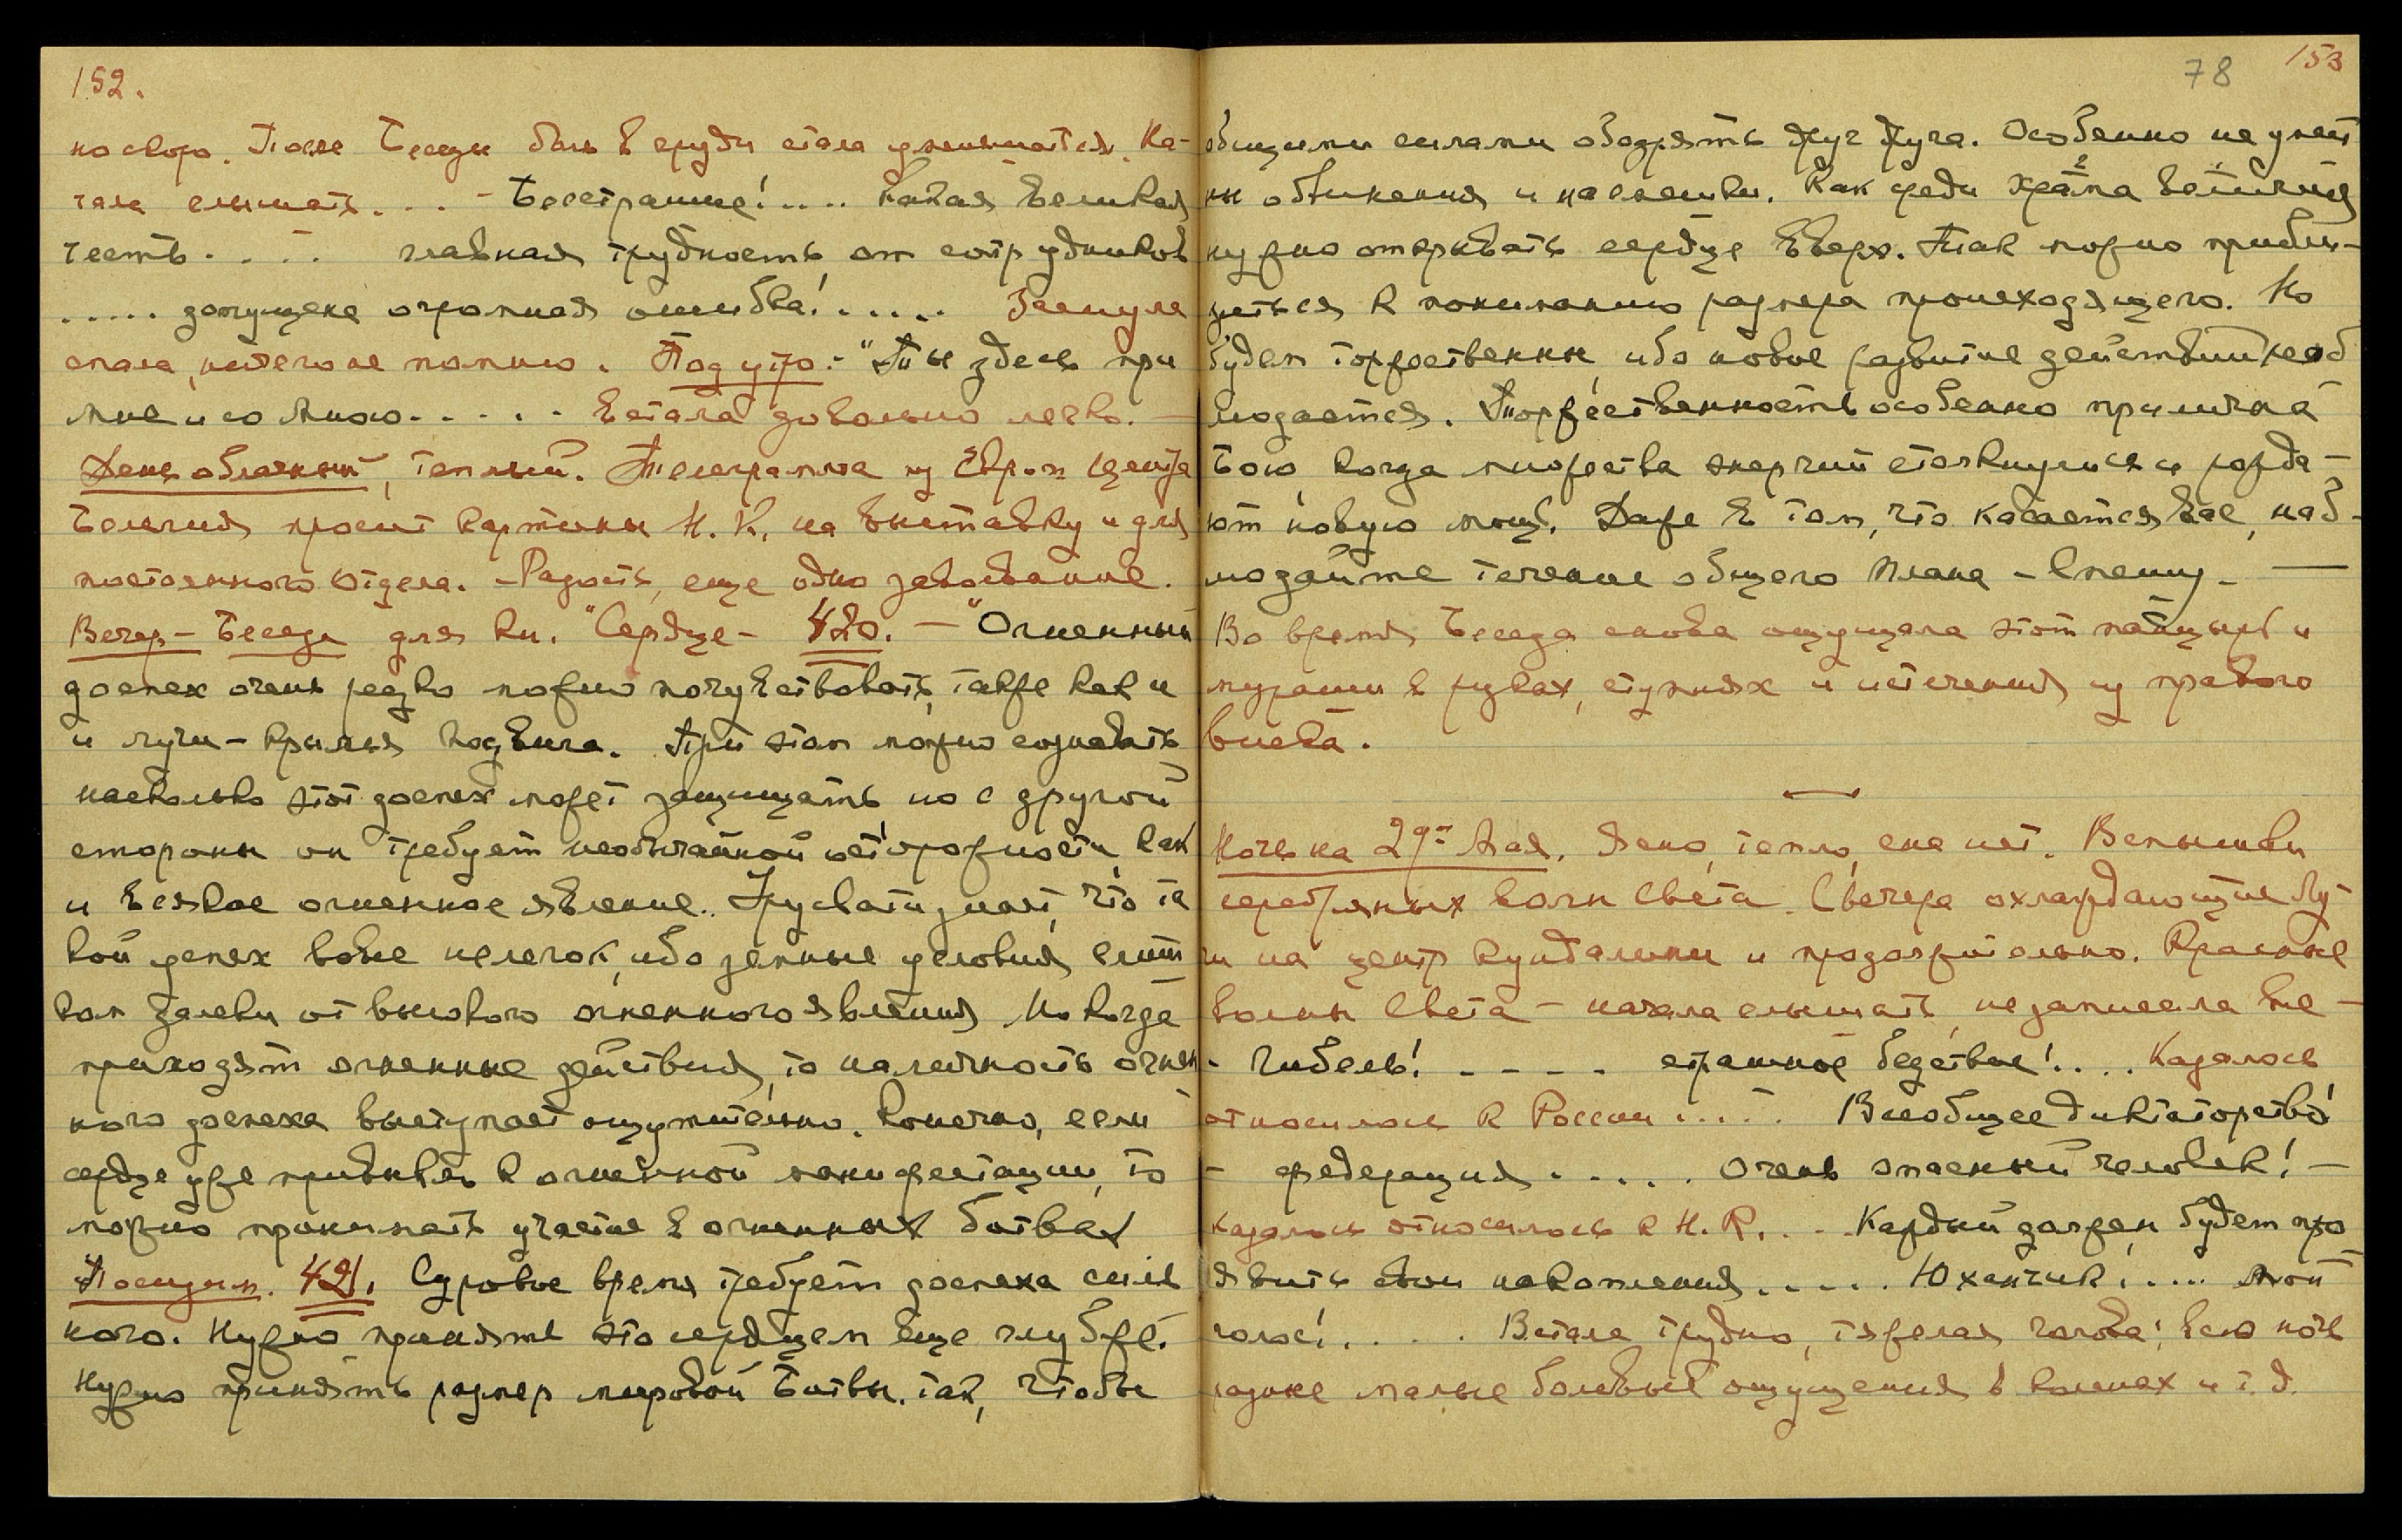 152.
но скоро. После Беседы боль в груди стала уменьшаться. На-
чала слышать. . . - Бесстрашие! .... Какая Великая
честь. . . . . главная трудность от сотрудников
..... допущена огромная ошибка! ..... Заснула
спала, ничего не помню. Под утро:- "Ты здесь при
мне и со Мною. . . . . Встала довольно легко. —
День облачный, теплый. Телеграмма из Европ центра
Бельгия просит картины Н. К. на выставку и для
постоянного отдела. - Радость, еще одно завоевание.
Вечер - Беседа для кн. "Сердце - 420. — "Огненный
доспех очень редко можно почувствовать, также как и
и лучи - крылья подвига. При этом можно сознавать
насколько этот доспех может защищать но с другой
стороны он требует необычайной осторожности, как
и всякое огненное явление. Урусвати знает, что та
кой успех вовсе нелегок, ибо земные условия слиш
ком далеки от высокого огненного явления. Но когда
приходят огненные действия, то наличность огнен-
ного доспеха выступает ощутительно. Конечно, если
сердце уже привыкло к огненной манифестации, то
можно принимать участие в огненных битвах
Посидим. 421. Суровое время требует доспеха силь
ного. Нужно принять это сердцем еще глубже.
Нужно принять размер мировой Битвы. так, чтобы
78 153
общими силами ободрять друг друга. Особенно не умест
ны обвинения и насмешки. Как среди храма величия
нужно открывать сердце вверх. Так можно прибли-
зиться к пониманию размера происходящего. Но
будем торжественны, ибо новое развитие действий наб
людается. Торжественность особенно прилична
Бою, когда множества энергий столкнулись и рожда-
ют новую мощь. Даже в том, что касается вас, наб-
людайте течение общего плана - Спешу - —
Во время Беседа снова ощущала этот панцырь и
мурашки в руках, ступнях и истечения из правого
виска.
Ночь на 29-ое Мая. Ясно, тепло, сна нет. Вспышки
серебряных волн Света. С вечера охлаждающие Лу-
чи на центр кундалини и продолжительно. Красные
волны Света - начала слышать, не записала все -
- Гибель! - - - - страшное бедствие! .... Казалось
относилось к России ..... Всеобщее диктаторство!
- федерация ..... Очень опасный человек! -
казалось относилось к Н. К. . . . Каждый должен будет про
явить свои накопления..... Юханчик! .... Мой
голос! . . . . Встала трудно, тяжелая голова, всю ночь
разные малые болевые ощущения в коленах и т. д.